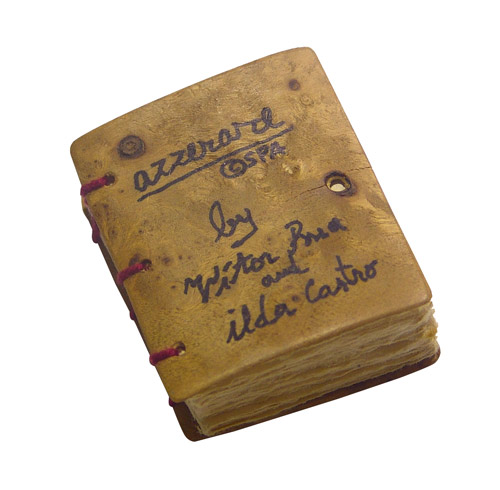 azzerare
©SPA
by
Vitor Bua
and
ilda Castro